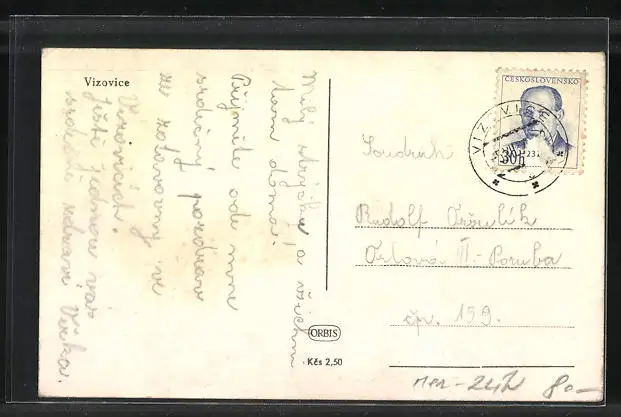 Vizovice
Milý strýčku a všichni
tam doma.
Přijměte ode mne
srdečný pozdrav
ze zotavovny ve
Vizovicích.
Ještě jednou vás
srdečně zdraví Věrka.
ČESKOSLOVENSKO
30h
VIZOVICE
Soudruh
Rudolf
Orlová II.-Poruba
čp. 159.
ORBIS
Kčs 2,50
80-